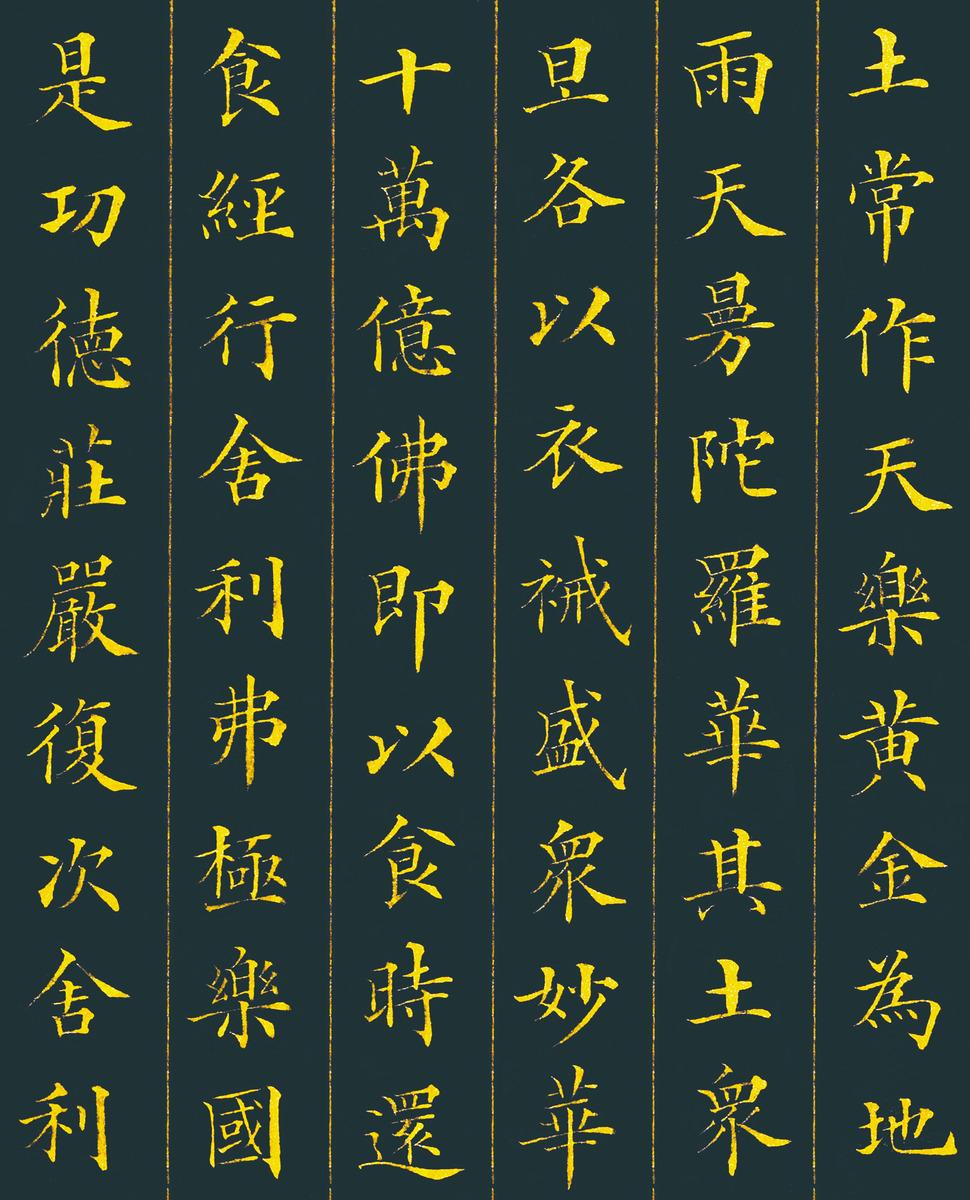 土常作天樂黄金為地
雨天曼陀羅華其土衆
旦各以衣裓盛衆妙華
十萬億佛即以食時還
食經行舍利弗極樂國
是功徳莊嚴復次舍利